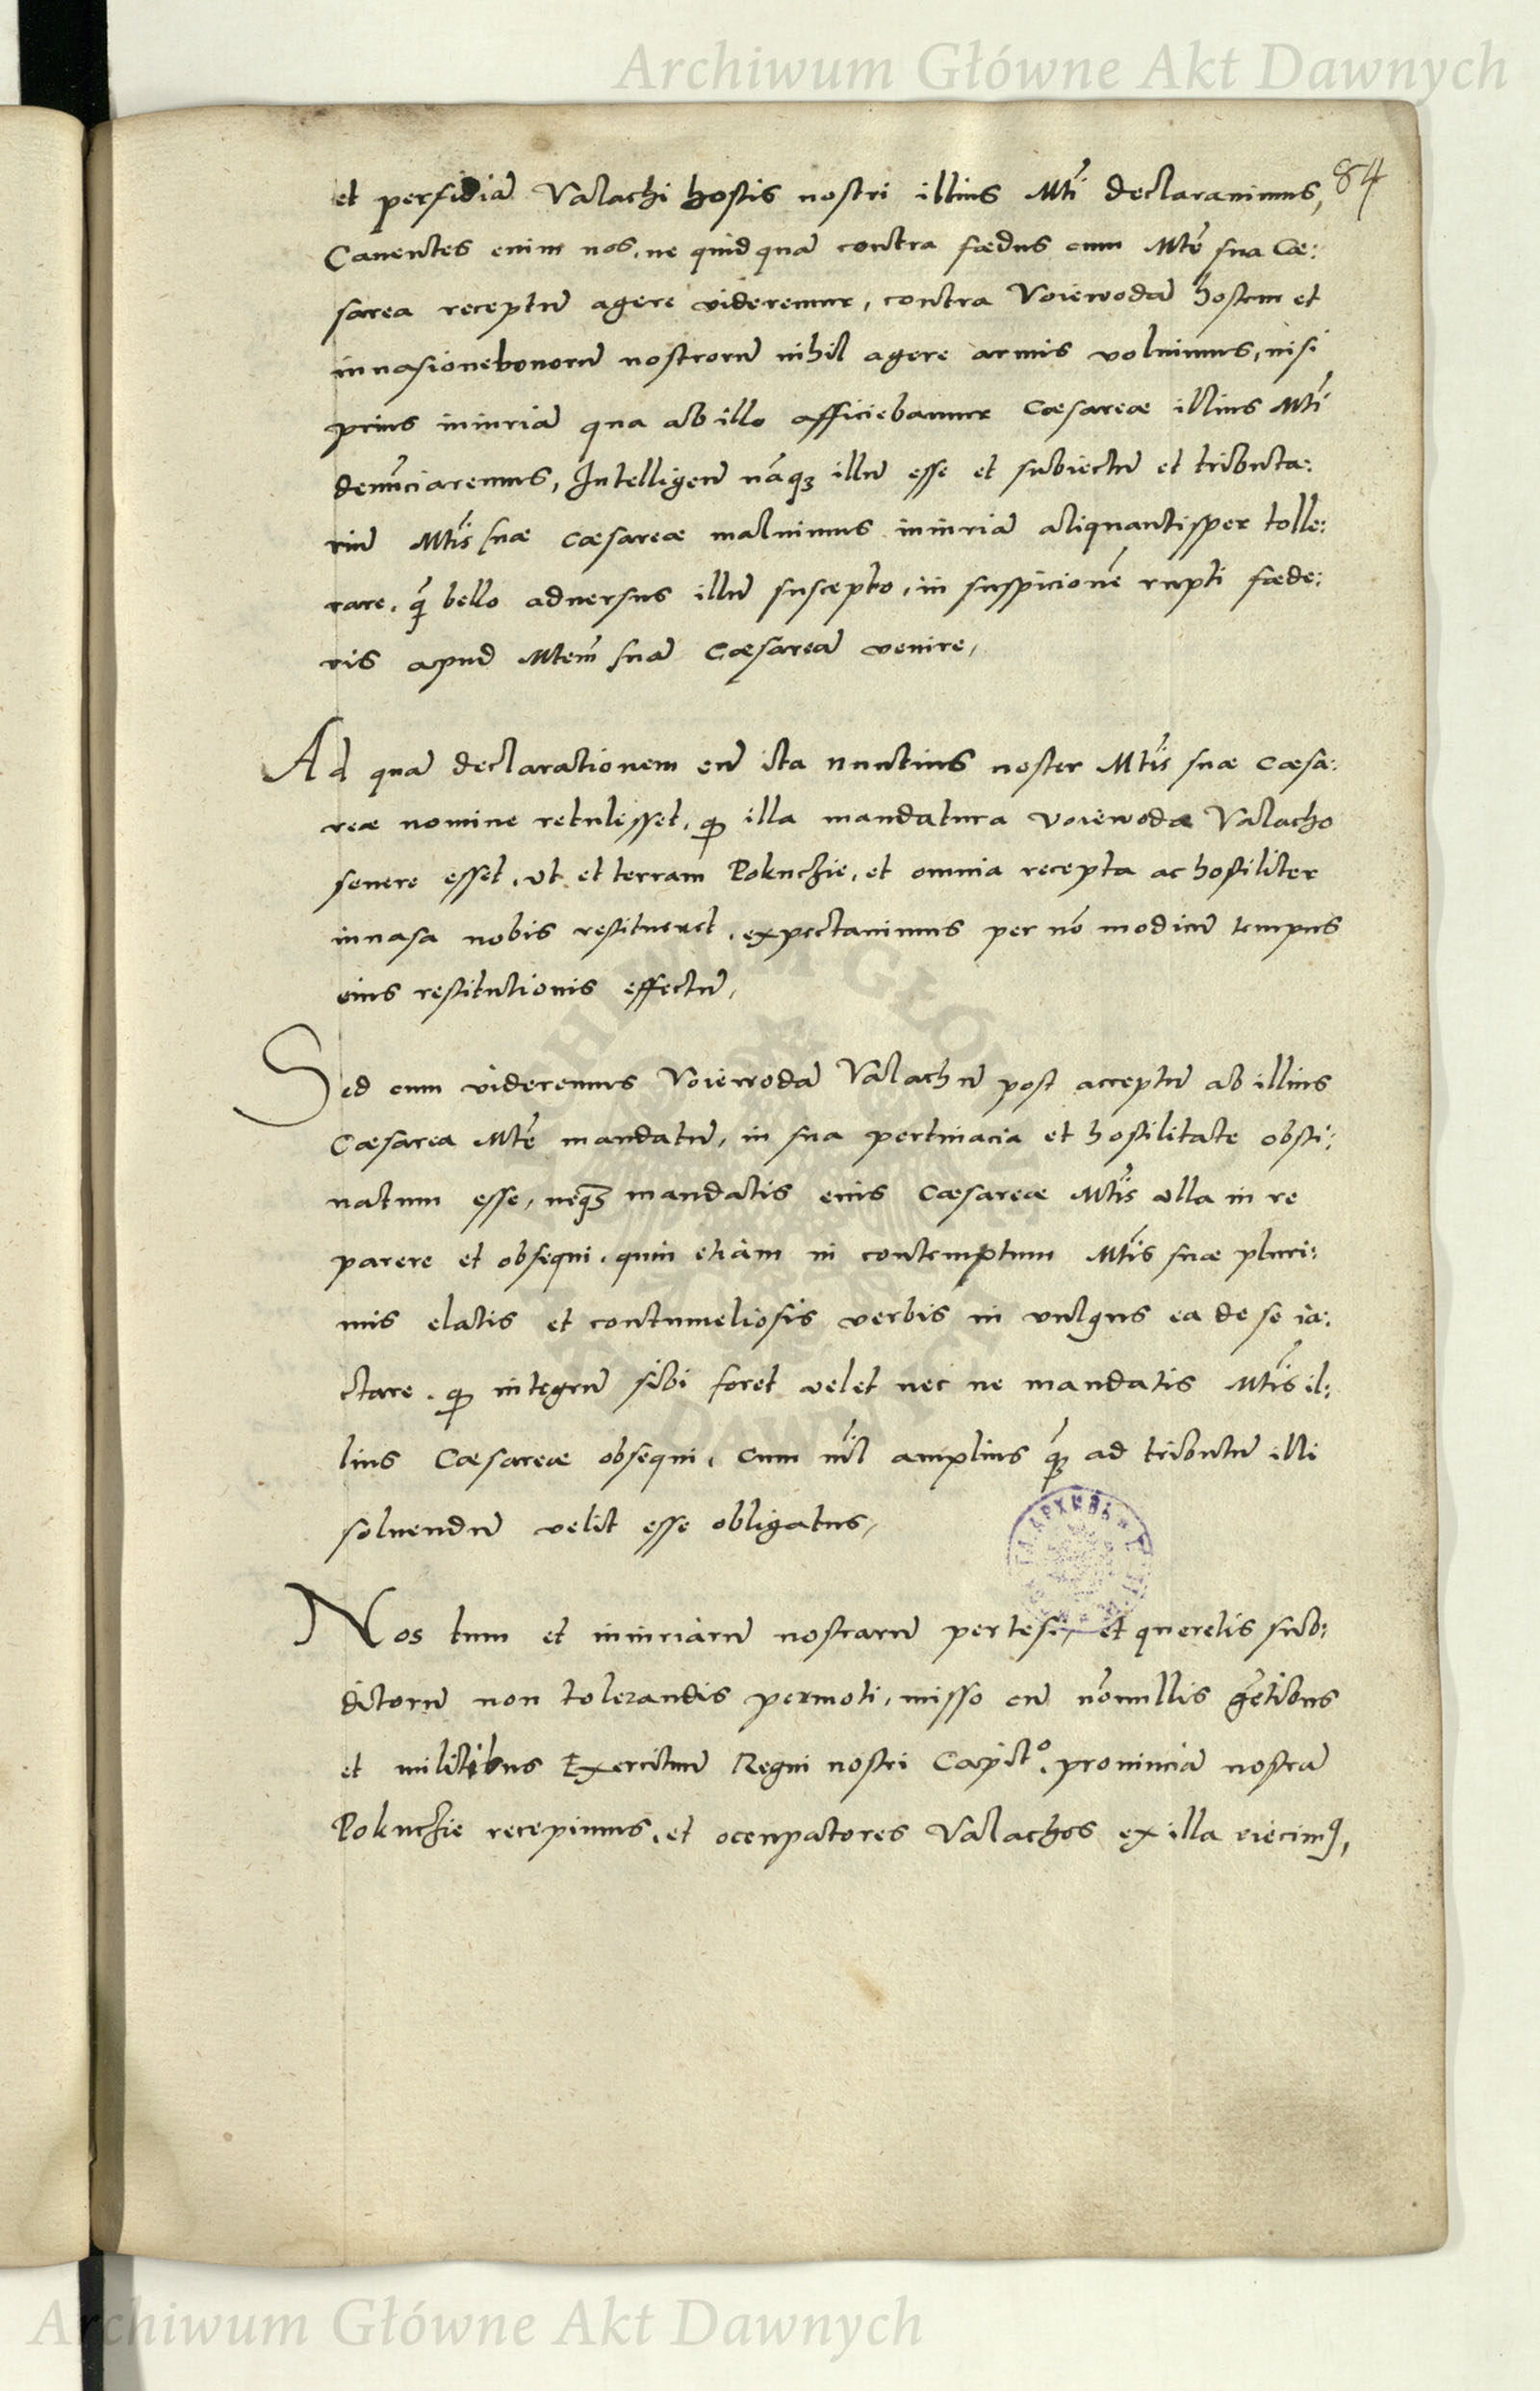 Archiwum Główne Akt Dawnych
84
et perfidiā Valachi hostis nostri illius Mti declarauimus,
Cauentes enim nos, ne quidquā contra fœdus cum Mte sua Cæ:
sarea receptū agere videremur, contra Voiewodā hostem et
inuasione bonorū nostrorū nihil agere armis voluimus, nisi
prius iniuriā qua ab illo afficiebamur Cæsareæ illius Mti
denūciaremus, Intelligen̄ nāqʒ illū esse et subiectū et tributa:
riū Mtis suæ Cæsareæ maluimus iniuriā aliquantisper tolle:
rare, q̄ bello aduersus illū suscepto, in suspicionē rupti fœde:
ris apud Mtem suā Cæsareā venire,
Ad quā declarationem cū ita nuntius noster Mtis suæ Cæsa:
reæ nomine retulisset, ꝙ illa mandatura Voiewodæ Valacho
seuere esset, vt et terram Pokuczie, et omnia recepta ac hostiliter
inuasa nobis restitueret, expectauimus per nō modicū tempus
eius restitutionis effectū,
Sed cum videremus Voiewodā Valachū post acceptū ab illius
Cæsarea Mte mandatū, in sua pertinacia et hostilitate obsti:
natum esse, neqʒ mandatis eius Cæsareæ Mtis vlla in re
parere et obsequi, quin etiam in contemptum Mtis suæ pluri:
mis elatis et contumeliosis verbis in vulgus ea de se ia:
ctare, ꝙ integrū sibi foret velet nec ne mandatis Mtis il:
lius Cæsareæ obsequi, cum nil amplius q̄ ad tributū illi
soluendū velit esse obligatus,
Nos tum et iniuriarū nostrarū pertesi, et querelis sub:
ditorū non tolerandis permoti, misso cū nōnullis gētibus
et militibus Exercituū Regni nostri Capit°, prouinciā nostrā
Pokuczie recepimus, et occupatores Valachos ex illa eiecimꝰ,
ARCHIWUM GŁÓWNE AKT DAWNYCH
Archiwum Główne Akt Dawnych